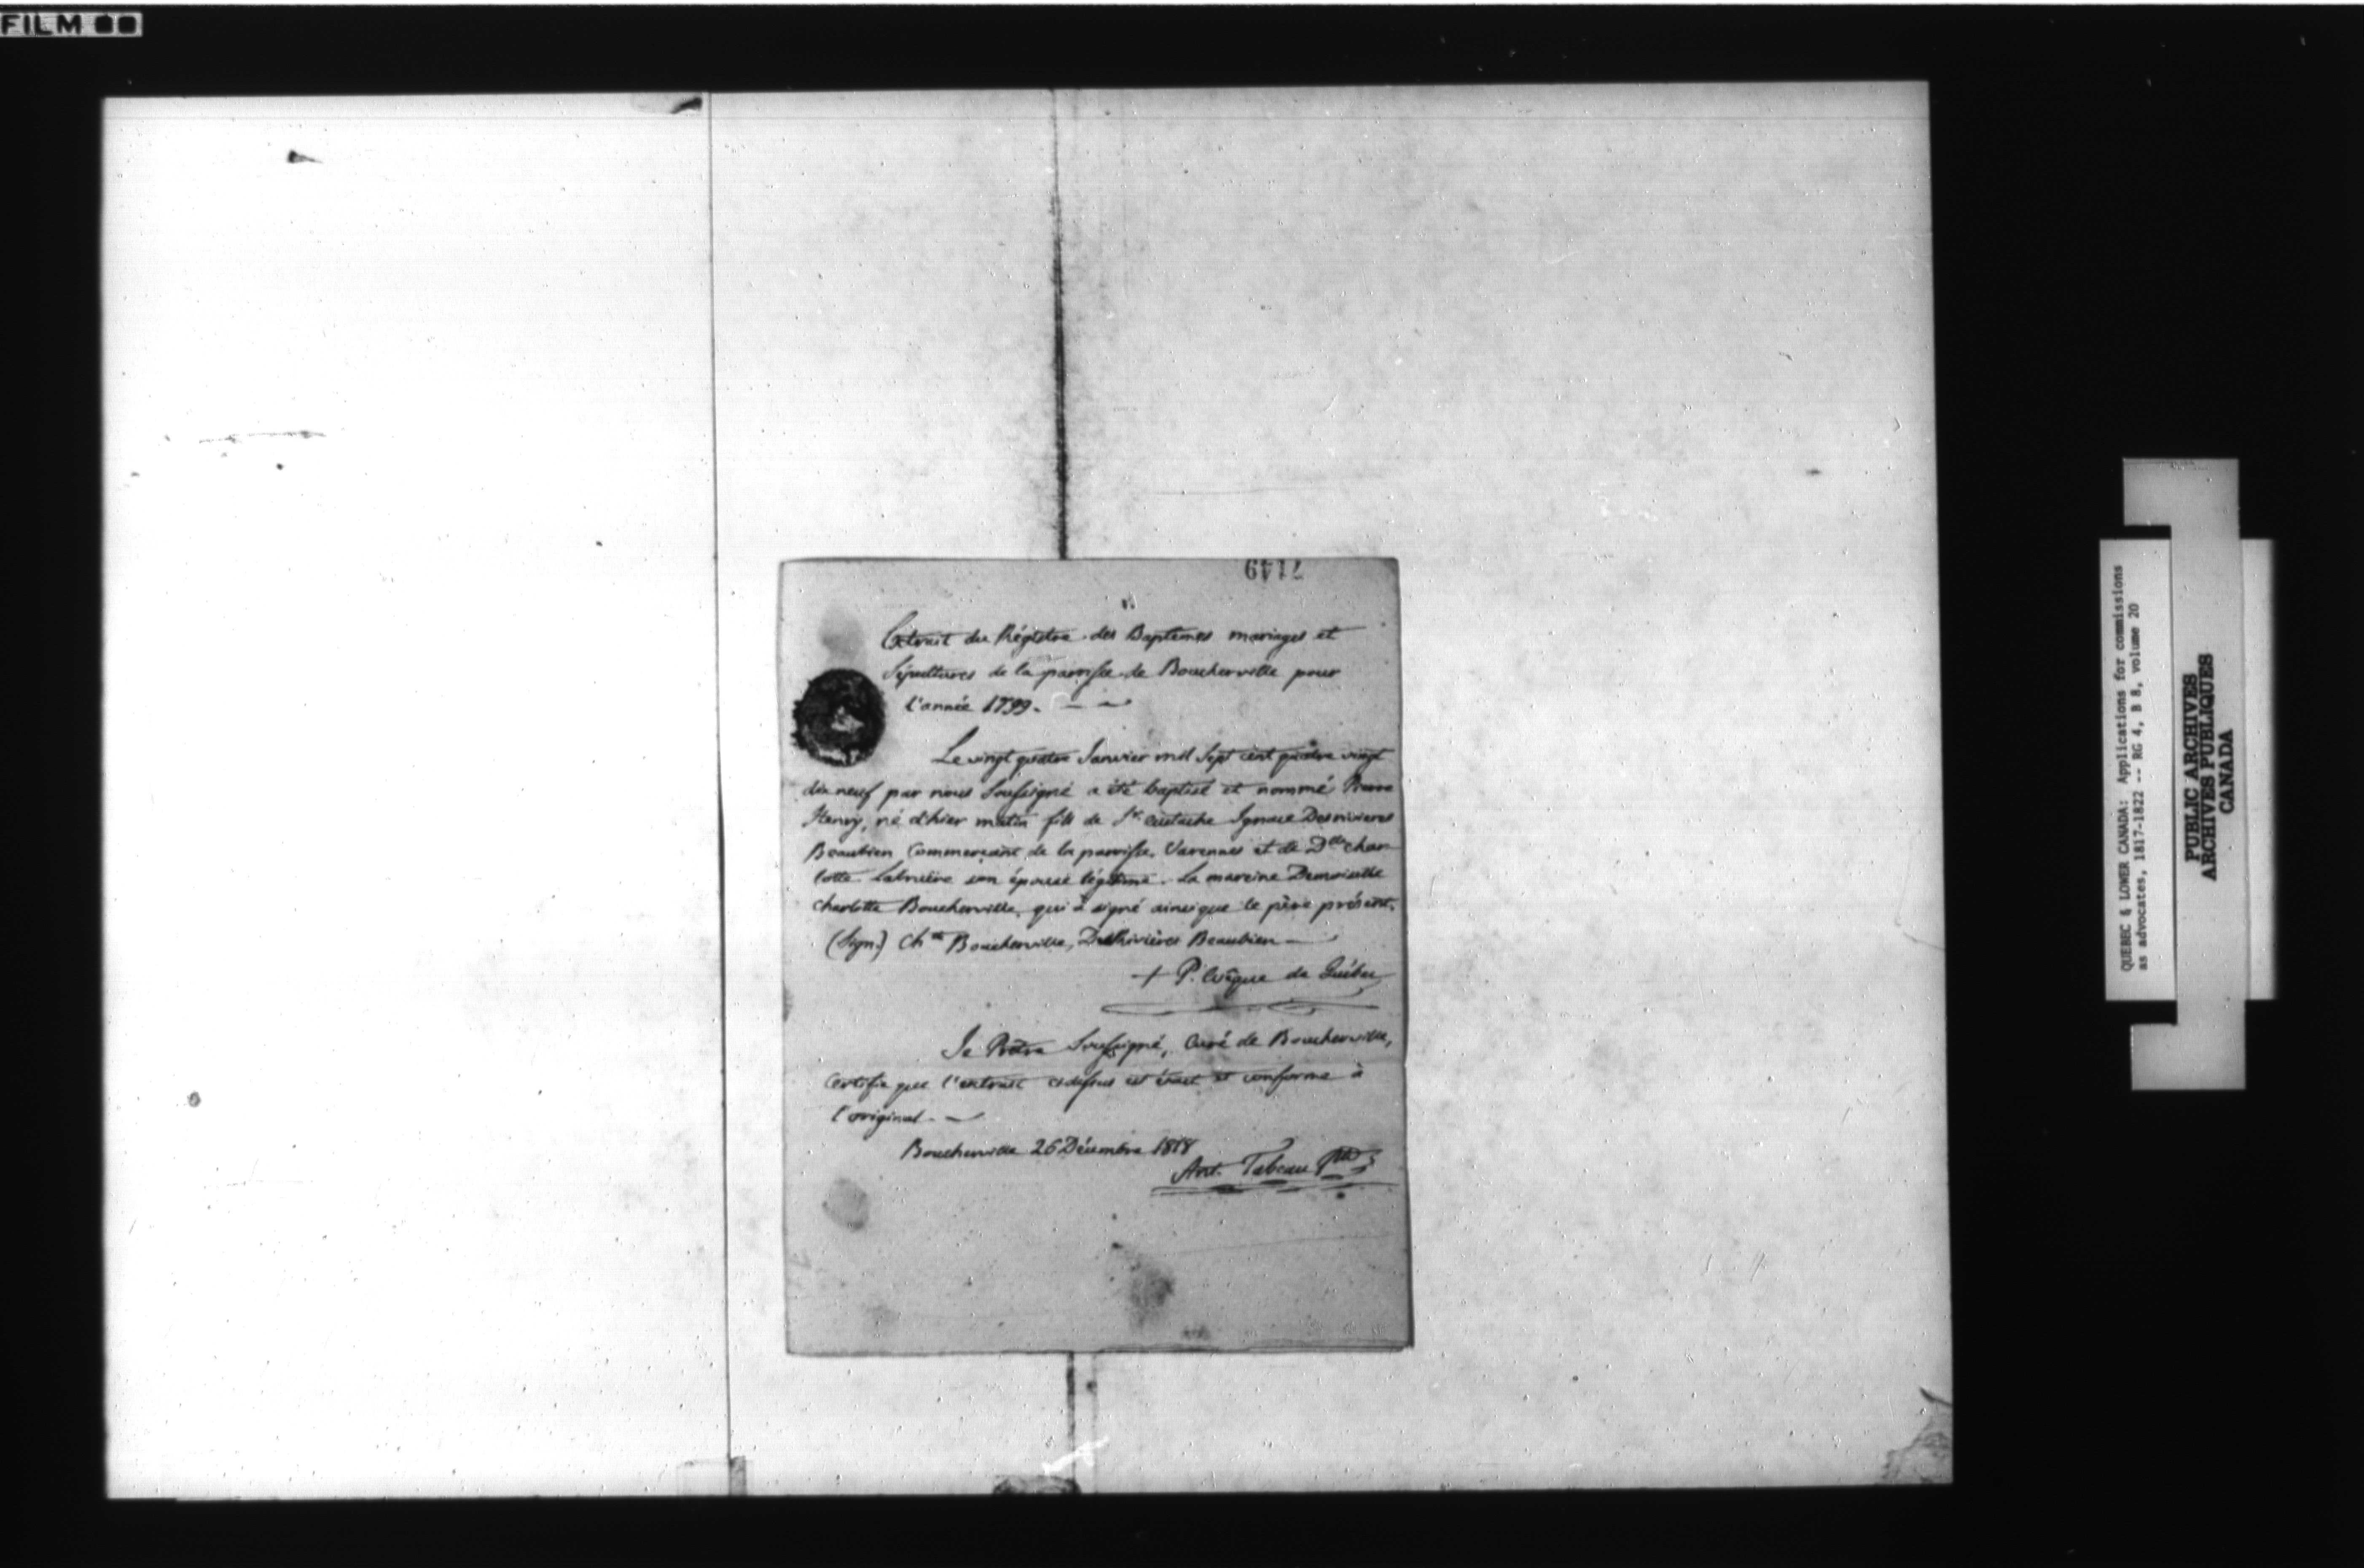 FILM
7149
Extrait du Régistre des Baptêmes mariages et
Sépultures de la paroisse de Boucherville pour
l'année 1799.
Le vingt quatre Janvier mil Sept cent quatre vingt
dix neuf par nous Soussigné a été baptisé et nommé Pierre
Henry, né d'hier matin fils de Sr. Eustache Ignace Desrivieres
Beaubien Commerçant de la paroisse Varennes et de Dlle Char
lotte Labruère son épouse légitime. La mareine Demoiselle
Charlotte Boucherville, qui a signé ainsi que le père présent.
(Sign.) Chtte Boucherville, DesRivières Beaubien
+ P. Evêque de Québec
Je Prêtre Soussigné, Curé de Boucherville,
Certifie que l'extrait cidessus est éxact et conforme à
l'original.
Boucherville 26 Décembre 1818
Ant. Tabeau Ptre
QUEBEC & LOWER CANADA: Applications for commissions
as advocates, 1817-1822 -- RG 4, B 8, volume 20
PUBLIC ARCHIVES
ARCHIVES PUBLIQUES
CANADA